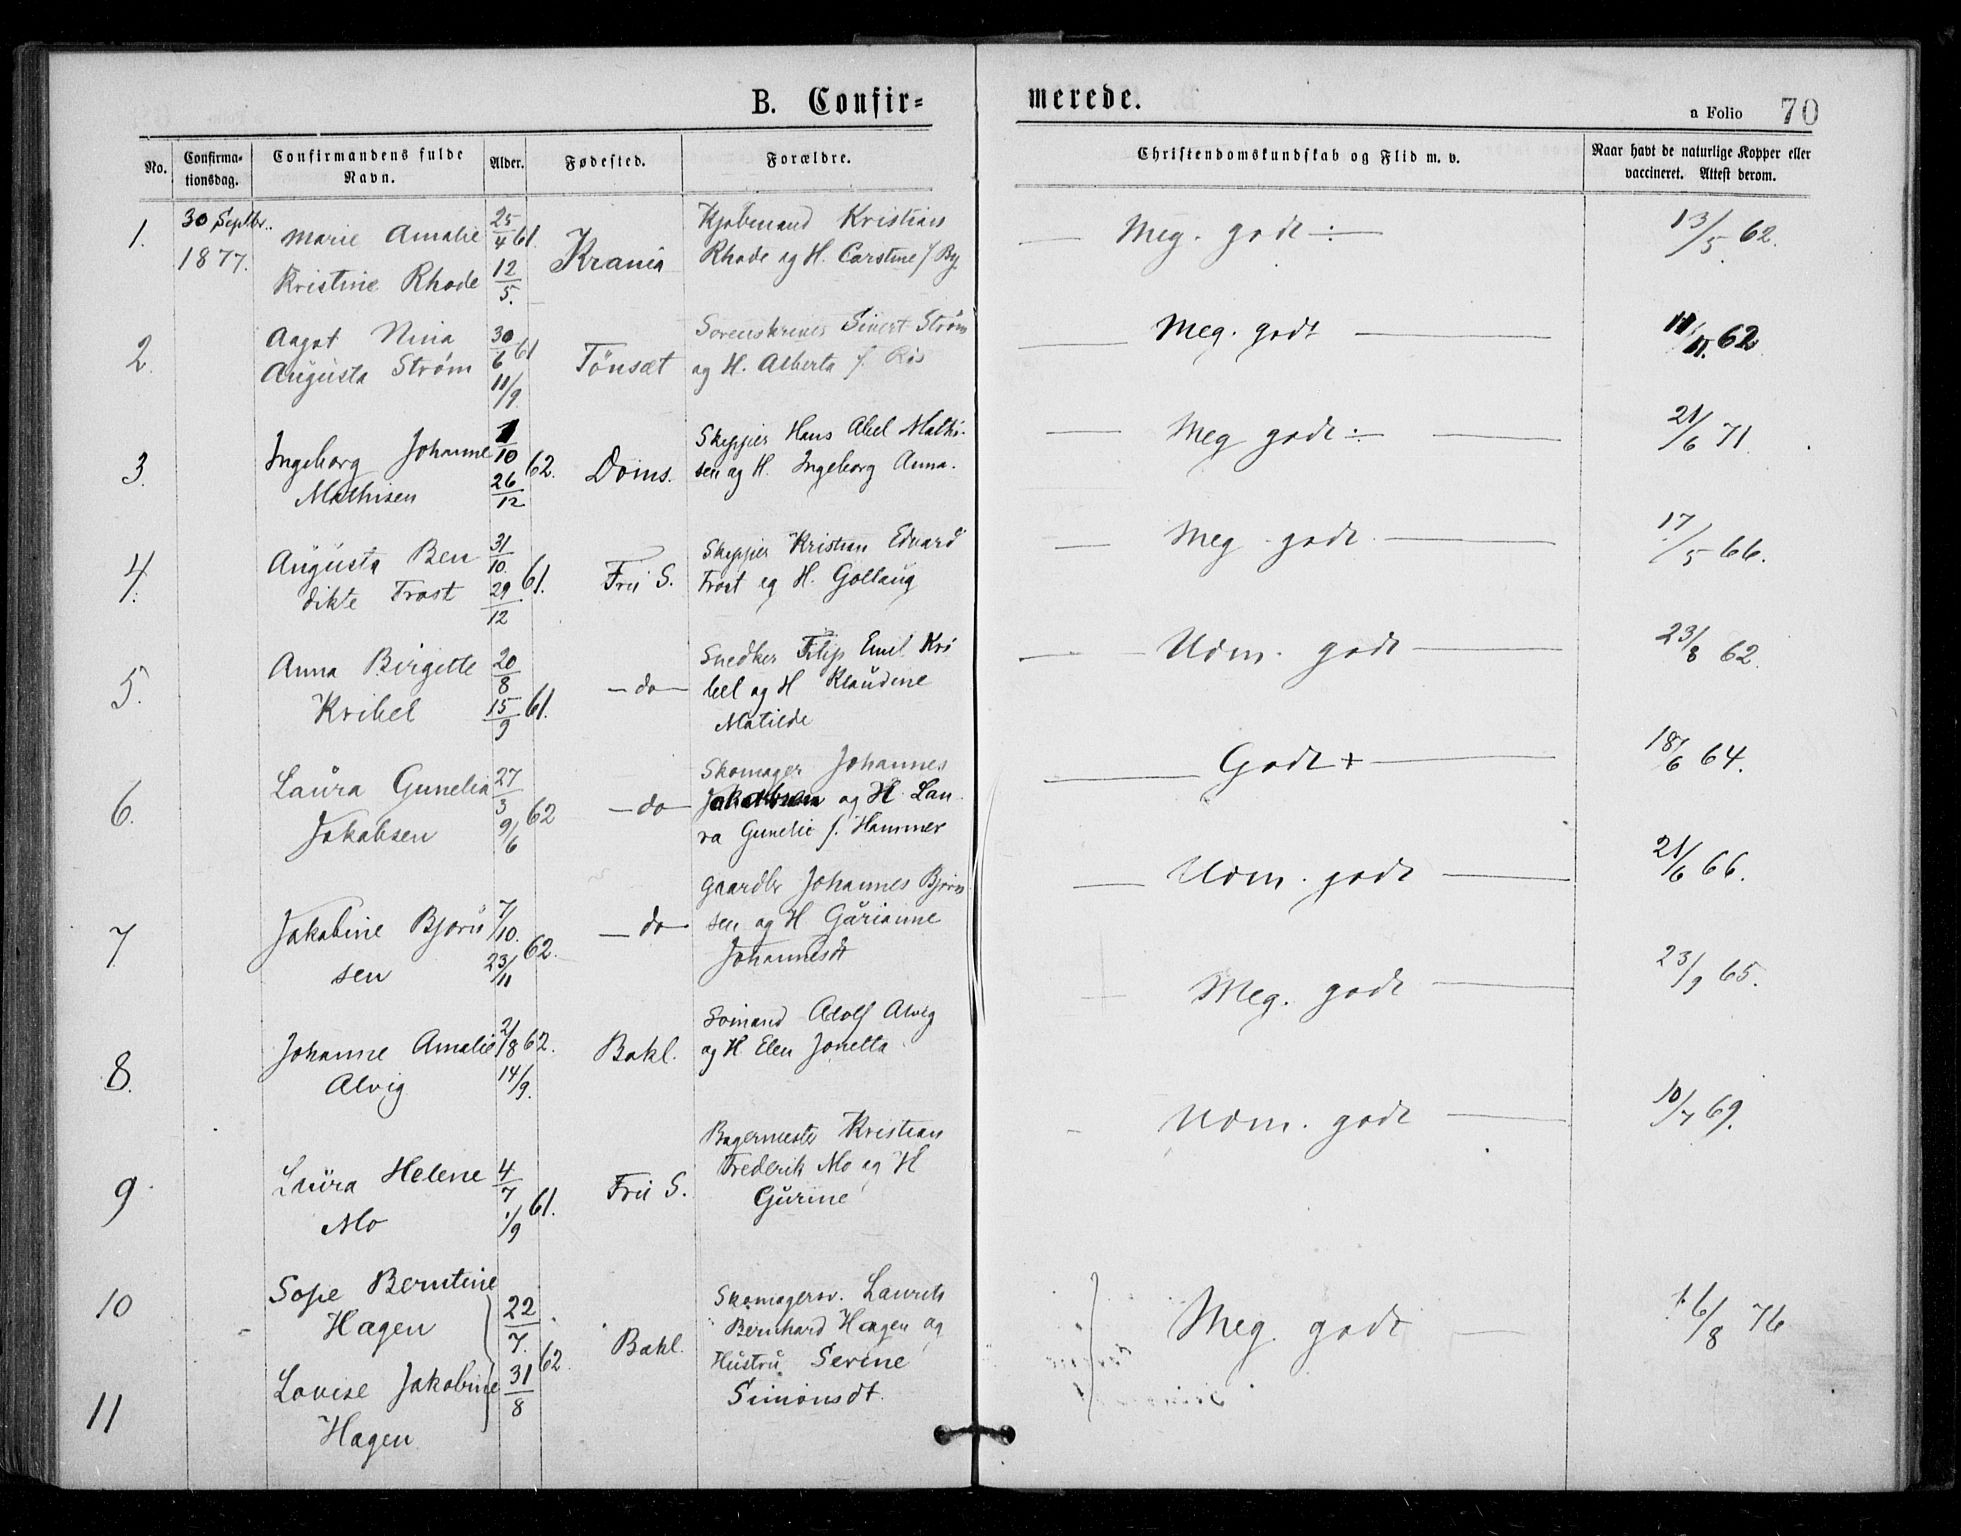 B. Confir=
merede.
a Folio 70
No.
Confirma-
tionsdag.
Confirmandens fulde
Navn.
Alder.
Fødested.
Forældre.
Christendomskundskab og Flid m. v.
Naar havt de naturlige Kopper eller
vaccineret. Attest derom.
1. 30 Septbr. Marie Amalie 25/4 61. Krania Kjøbmand Kristian Meg. godt 13/5 62.
1877. Kristine Rhode 12/5. Rhode og H. Carstine f By
2. Aagot Nina 30/6 61 Tönset Sorenskriver Sivert Strøm Meg. godt 11/11. 62
Augusta Strøm 11/9 og H. Alberta f. Ros
3. Ingeborg Johanne 1/10 62. Doms. Skipper Hans Abel Mathi- Meg godt 21/6 71.
Mathisen 26/12 sen og H. Ingeborg Anna.
4. Augusta Ben 31/10. 61. Fru S. Skipper Kristian Edvard Meg godt 17/5 66.
dikte Frost 29/12 Frost og H. Gollaug
5. Anna Birgitte 20/8 61. —do— Snedker Filip Emil Kri Udm. godt 23/8 62.
Kribel 15/9 bel og H Klaudine
Matilde
6. Laura Gunelia 27/3 62 —do— Skomager Johannes Godt + 18/6 64.
Jakobsen 9/6 Jakobsen og H. Lau
ra Gunelie f. Hammer
7. Jakobine Bjørn 7/10. 62. —do— Gaardbr Johannes Bjørn Udm. godt 21/6 66.
sen 23/11 sen og H Gurianne
Johannesdt
8. Johanne Amalie 2/8 62. Bakl. Sømand Adolf Alvig Meg. godt 23/9 65.
Alvig 14/9. og H. Elen Jonetta
9. Laura Helene 4/7 61. Fru S. Bagermester Kristian Udm. godt 10/7 69.
Mo 1/9 Frederik Mo og H
Gurine
10 Sofie Berntine 22/7. 62. Bakl. Skomagersv. Laurits Meg. godt 16/8 76
Hagen Bernhard Hagen og
Lovise Jakobine 31/8 Hustru Serine
11 Hagen Simonsdt.